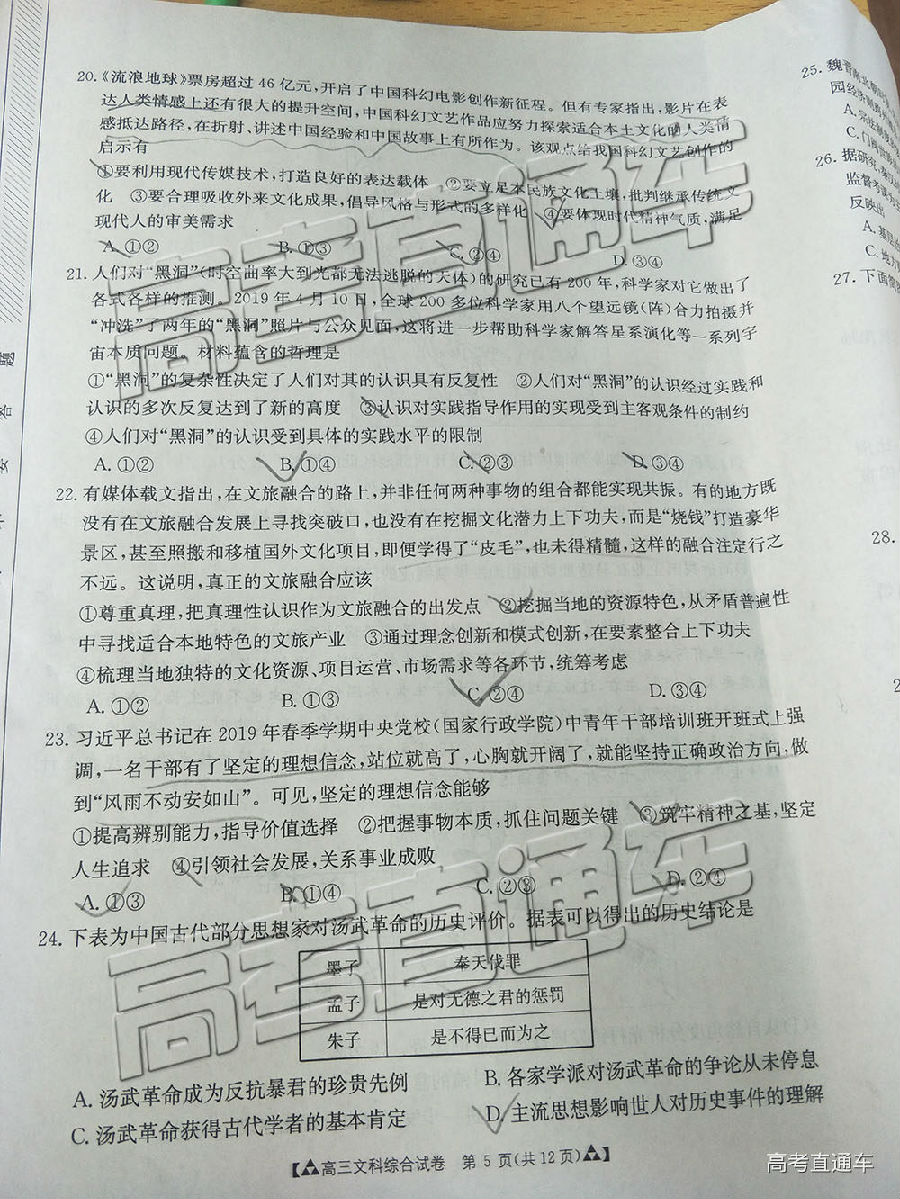 20.《流浪地球》票房超过 46 亿元,开启了中国科幻电影创作新征程。但有专家指出,影片在表
达人类情感上还有很大的提升空间,中国科幻文艺作品应努力探索适合本土文化的人类情
感抵达路径,在折射、讲述中国经验和中国故事上有所作为。该观点给我国科幻文艺创作的
启示有
①要利用现代传媒技术,打造良好的表达载体 ②要立足本民族文化土壤,批判继承传统文
化 ③要合理吸收外来文化成果,倡导风格与形式的多样化 ④要体现时代精神气质,满足
现代人的审美需求
A. ①② B. ①③ C. ②④ D. ③④
21. 人们对“黑洞”(时空曲率大到光都无法逃脱的天体)的研究已有 200 年,科学家对它做出了
各式各样的推测。2019 年 4 月 10 日,全球 200 多位科学家用八个望远镜(阵)合力拍摄并
“冲洗”了两年的“黑洞”照片与公众见面,这将进一步帮助科学家解答星系演化等一系列宇
宙本质问题。材料蕴含的哲理是
①“黑洞”的复杂性决定了人们对其的认识具有反复性 ②人们对“黑洞”的认识经过实践和
认识的多次反复达到了新的高度 ③认识对实践指导作用的实现受到主客观条件的制约
④人们对“黑洞”的认识受到具体的实践水平的限制
A. ①② B. ①④ C. ②③ D. ③④
22. 有媒体载文指出,在文旅融合的路上,并非任何两种事物的组合都能实现共振。有的地方既
没有在文旅融合发展上寻找突破口,也没有在挖掘文化潜力上下功夫,而是“烧钱”打造豪华
景区,甚至照搬和移植国外文化项目,即便学得了“皮毛”,也未得精髓,这样的融合注定行之
不远。这说明,真正的文旅融合应该
①尊重真理,把真理性认识作为文旅融合的出发点 ②挖掘当地的资源特色,从矛盾普遍性
中寻找适合本地特色的文旅产业 ③通过理念创新和模式创新,在要素整合上下功夫
④梳理当地独特的文化资源、项目运营、市场需求等各环节,统筹考虑
A. ①② B. ①③ C. ②④ D. ③④
23. 习近平总书记在 2019 年春季学期中央党校(国家行政学院)中青年干部培训班开班式上强
调,一名干部有了坚定的理想信念,站位就高了,心胸就开阔了,就能坚持正确政治方向,做
到“风雨不动安如山”。可见,坚定的理想信念能够
①提高辨别能力,指导价值选择 ②把握事物本质,抓住问题关键 ③筑牢精神之基,坚定
人生追求 ④引领社会发展,关系事业成败
A. ①③ B. ①④ C. ②③ D. ②④
24. 下表为中国古代部分思想家对汤武革命的历史评价。据表可以得出的历史结论是
墨子 奉天伐罪
孟子 是对无德之君的惩罚
朱子 是不得已而为之
A. 汤武革命成为反抗暴君的珍贵先例 B. 各家学派对汤武革命的争论从未停息
C. 汤武革命获得古代学者的基本肯定 D. 主流思想影响世人对历史事件的理解
【高三文科综合试卷 第 5 页(共 12 页)】
25. 魏晋南北朝
园经济
A.
C. 门
26. 据研究
监督考
反映出
A. 基层
C. 地方
27. 下面
28.
题
答
要
高考直通车
高考直通车
高考直通车